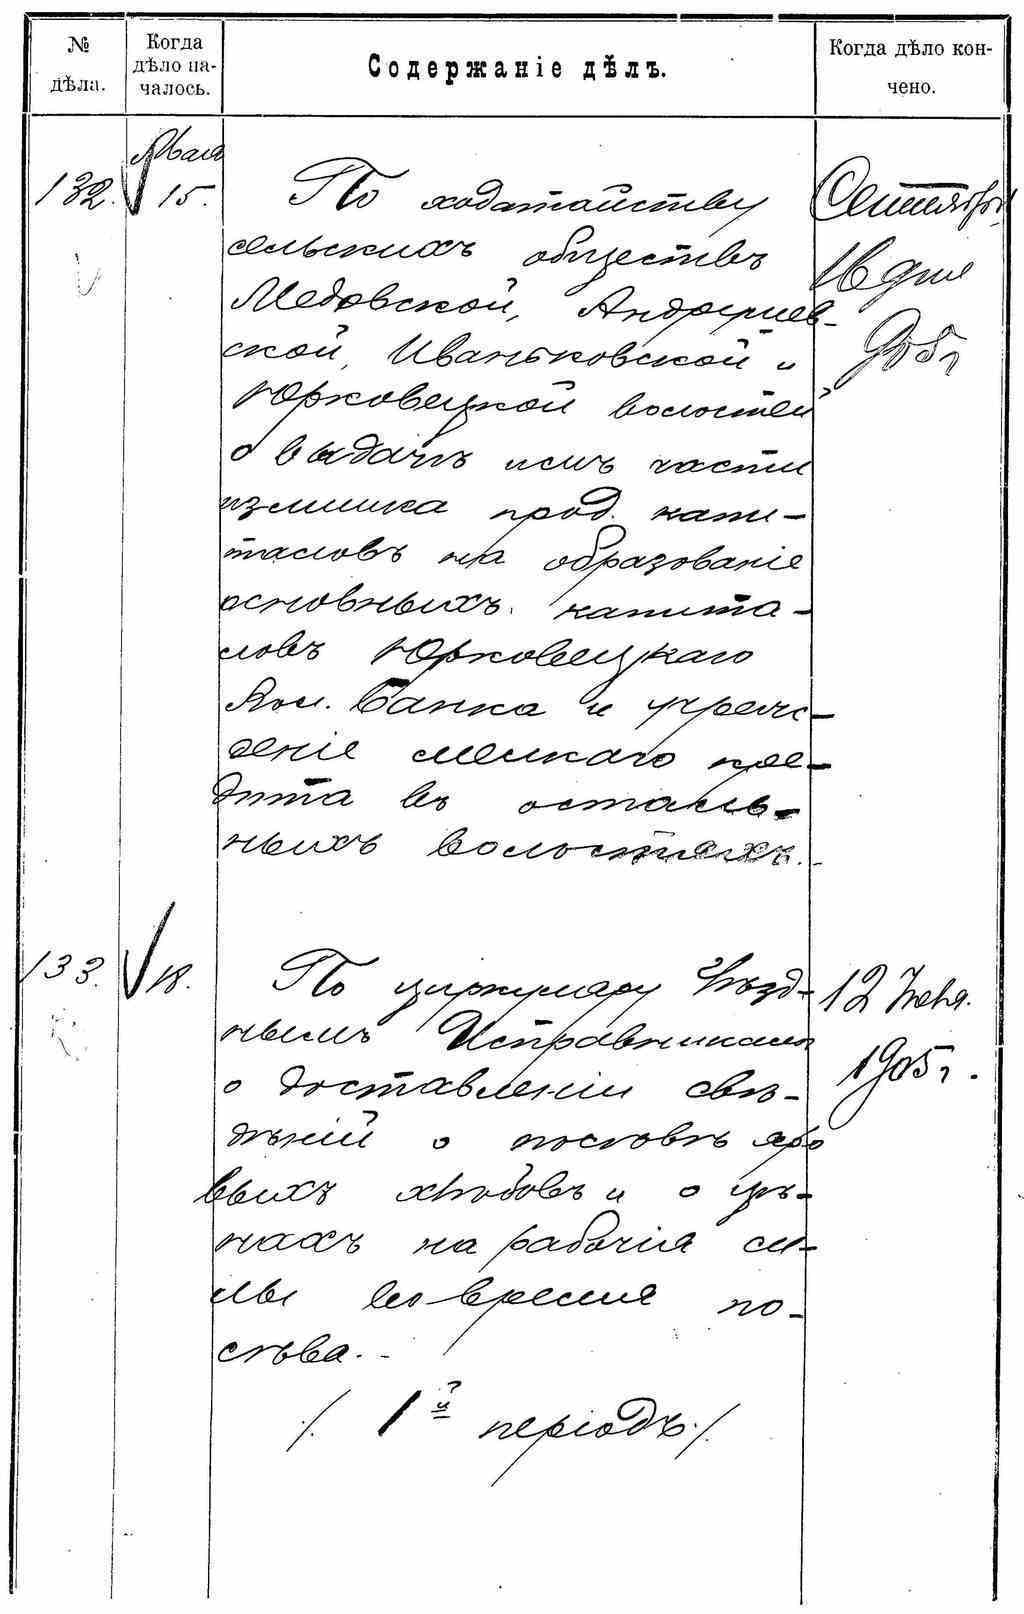 № дѣла.
Когда дѣло на-
чалось.
Содержаніе дѣлъ.
Когда дѣло кон-
чено.
Мая
132. 15.
По ходатайству
сельскихъ обществъ
Медовской, Андрушев-
ской, Иваньковской и
Юрковецкой волостей
о выдачѣ имъ части
излишка прод. капи-
таловъ на образованіе
основныхъ капита-
ловъ Юрковецкаго
Вол. Банка и учреж-
деніе мелкаго кре-
дита въ осталь-
ныхъ волостяхъ.
Сентября
16 дня
905 г
133. 18.
По циркуляру Уѣзд-
нымъ Исправникамъ
о доставленіи свѣ-
дѣній о посѣвѣ яро
выхъ хлѣбовъ и о цѣ-
нахъ на рабочія си-
лы во время по-
сѣва.
/. 1й періодъ ./.
12 Іюня.
1905 г.